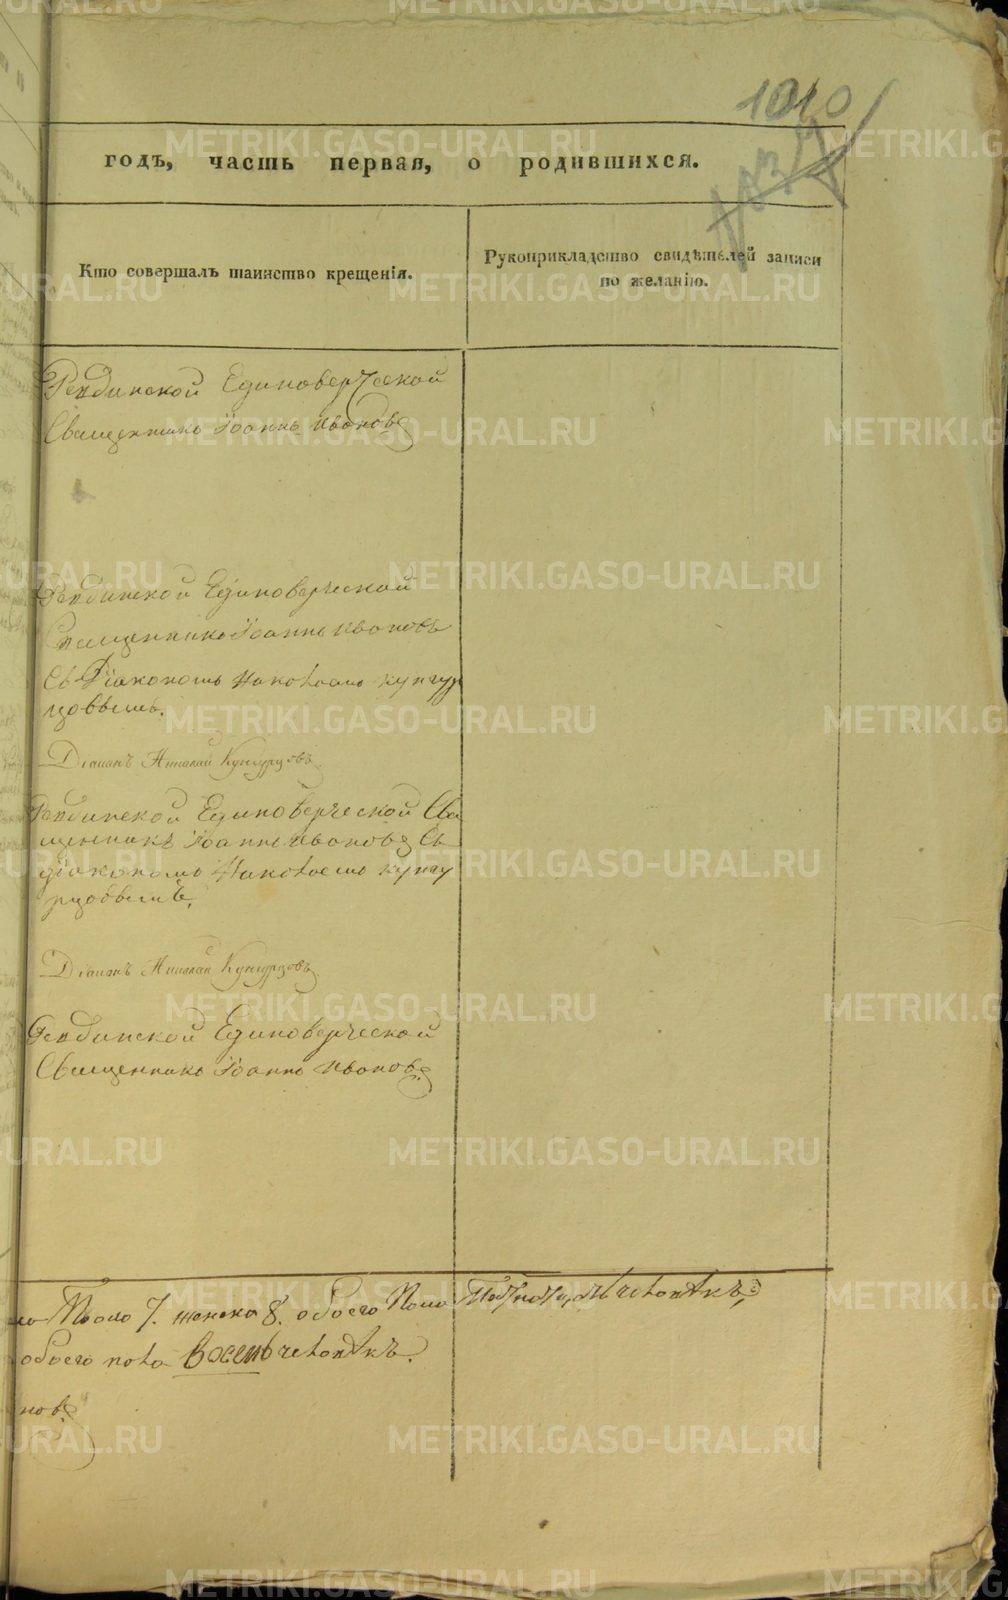 1010
годъ, часть первая, о родившихся.
Кто совершалъ таинство крещенія.
Рукоприкладство свидѣтелей записи
по желанію.
Ревдинской Единоверческой
Священникъ Іоаннъ Ивановъ
Ревдинской Единоверческой
Священникъ Іоаннъ Ивановъ
Съ Діакономъ Николаемъ Кунгур
цовымъ.
Діаконъ Николай Кунгурцовъ
Ревдинской Единоверческой Свя
щенникъ Іоаннъ Ивановъ Съ
діакономъ Николаемъ Кунгу
рцовымъ.
Діаконъ Николай Кунгурцовъ
Ревдинской Единоверческой
Священникъ Іоаннъ Ивановъ
7. женска 8. обоего пола человѣкъ,
обоего пола Восемь человѣкъ.
новъ
METRIKI.GASO-URAL.RU